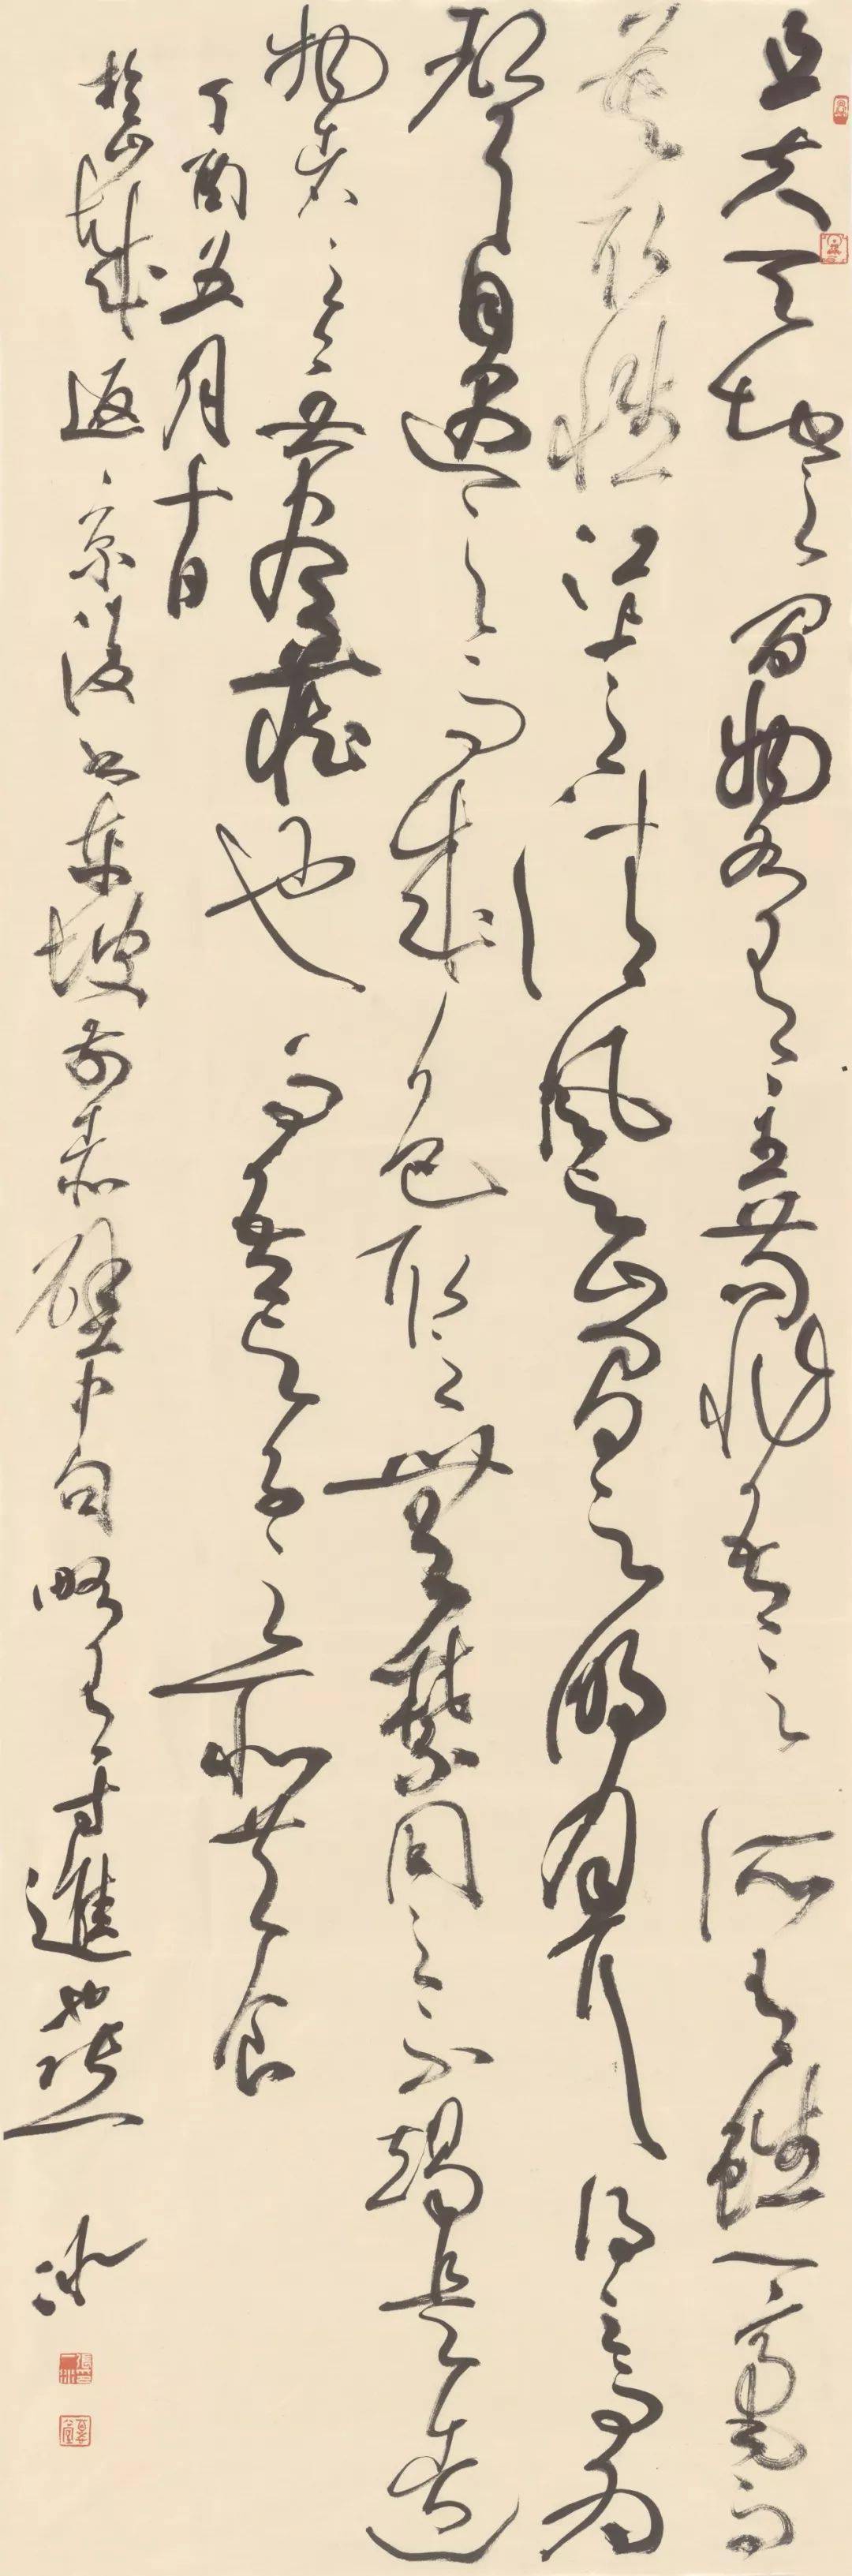 且夫天地之間物各有主苟非吾之所有雖一毫而
莫取惟江上之清風與山間之明月耳得之而為
聲目遇之而成色取之無禁用之不竭是造
物者之無盡藏也而吾與子之所共食
丁酉五月十日
於山城返京後書東坡前赤壁中句略有寸進也
冰